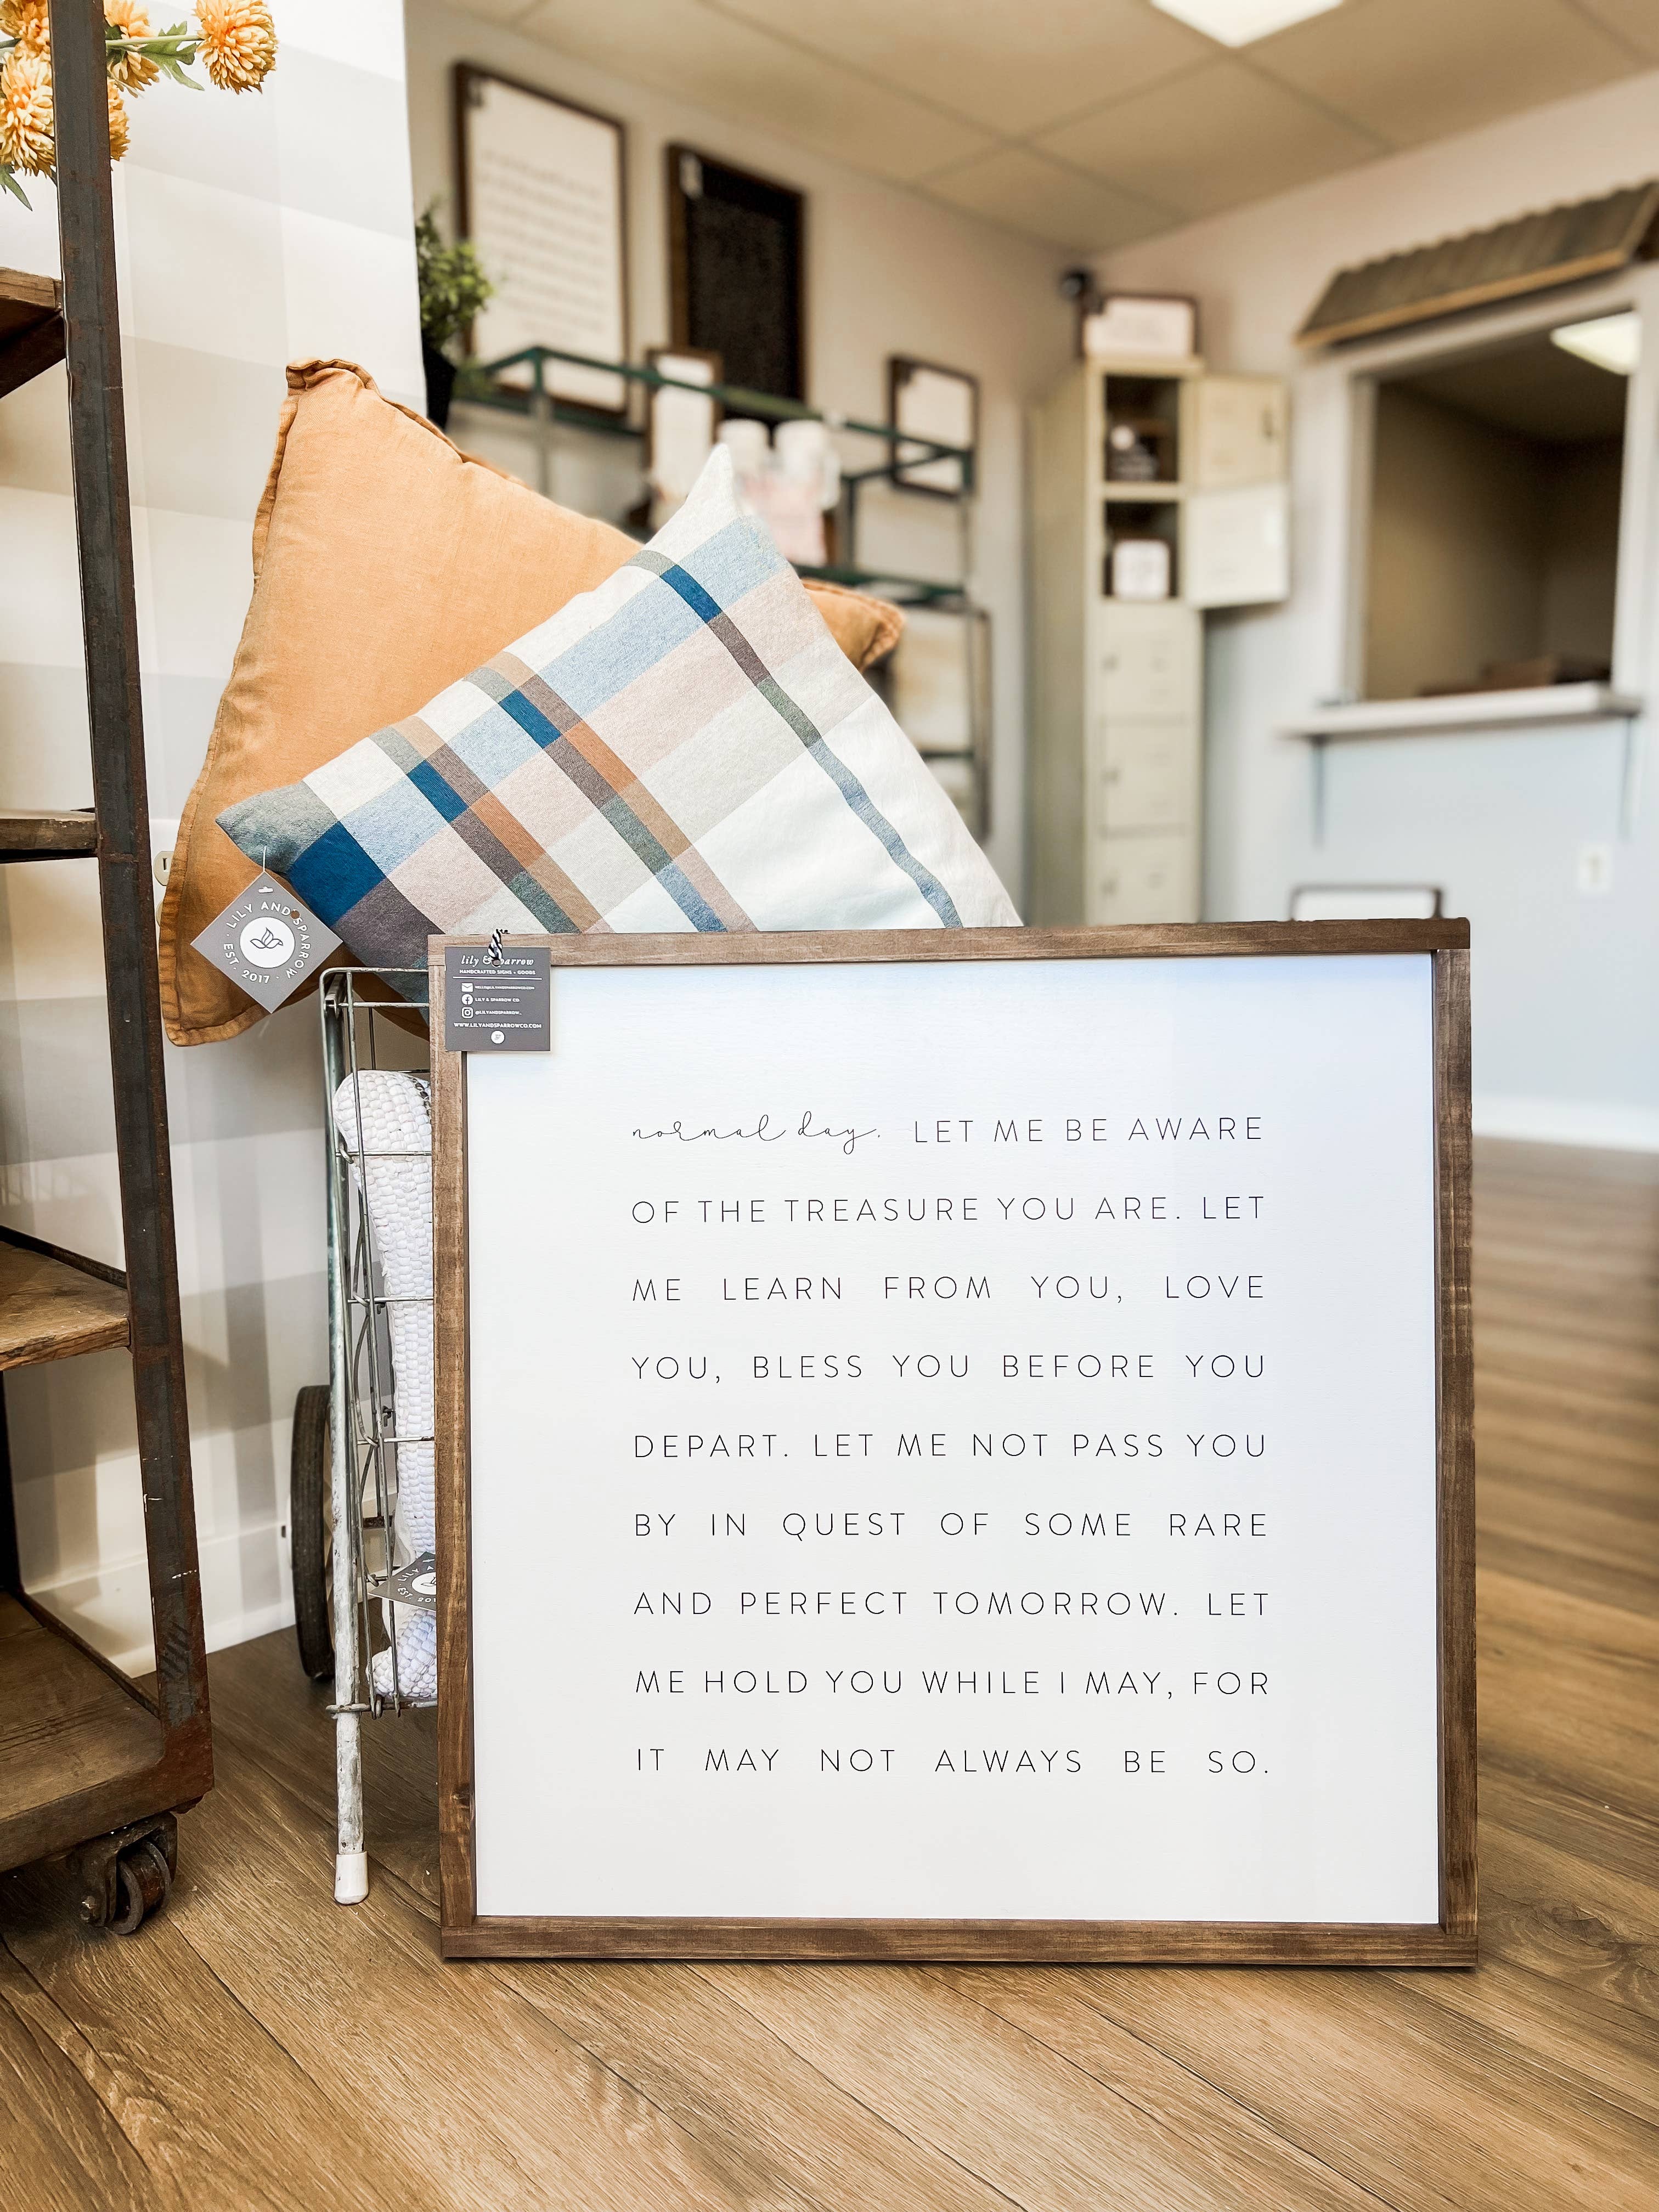 LILY AND SPARROW
EST. 2017
lily & sparrow
HANDCRAFTED SIGNS + GOODS
LILY & SPARROW CO.
@LILYANDSPARROW_
WWW.LILYANDSPARROWCO.COM
normal day. LET ME BE AWARE
OF THE TREASURE YOU ARE. LET
ME LEARN FROM YOU, LOVE
YOU, BLESS YOU BEFORE YOU
DEPART. LET ME NOT PASS YOU
BY IN QUEST OF SOME RARE
AND PERFECT TOMORROW. LET
ME HOLD YOU WHILE I MAY, FOR
IT MAY NOT ALWAYS BE SO.